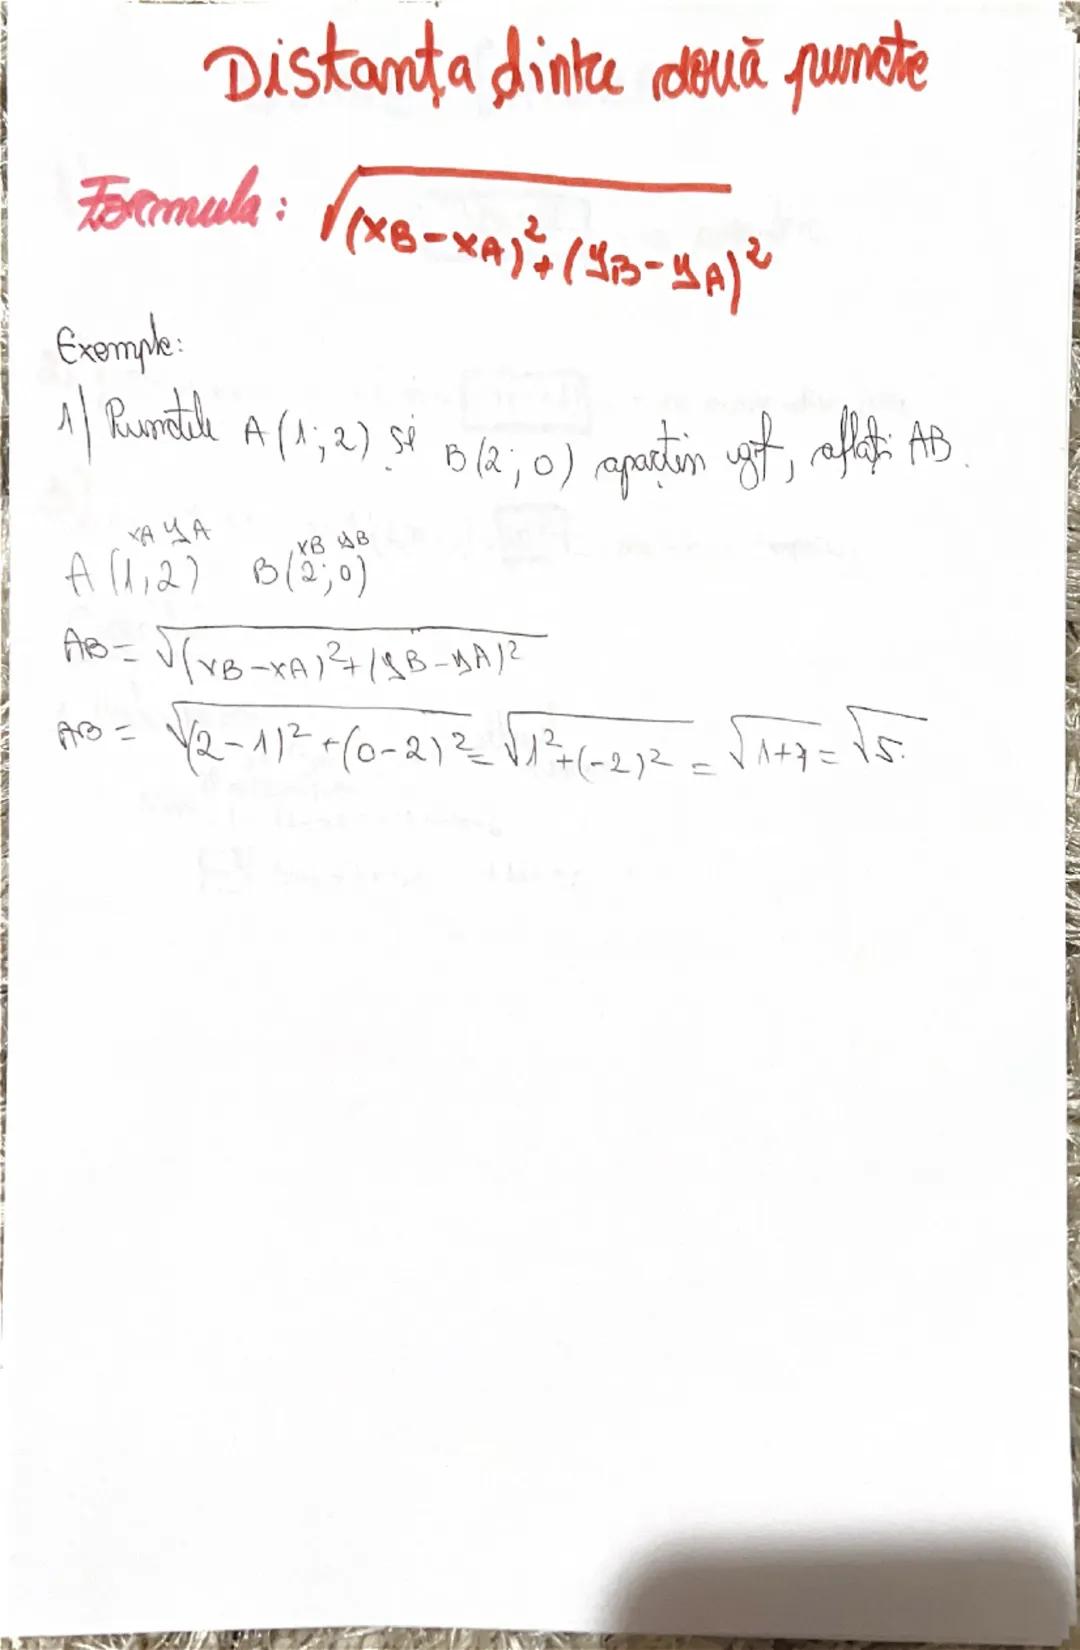 Distanța dintre două puncte
Formula: √(xB-xA)²+(yB-yA)²
Exemple:
1) Punctele A(1;2) și B(2;0) aparțin Ggf, aflați AB.
xA yA xB yB
A(1;2) B(2;0)
AB=√(xB-xA)²+(yB-yA)²
AB=√(2-1)²+(0-2)²=√1²+(-2)²=√1+4=√5.